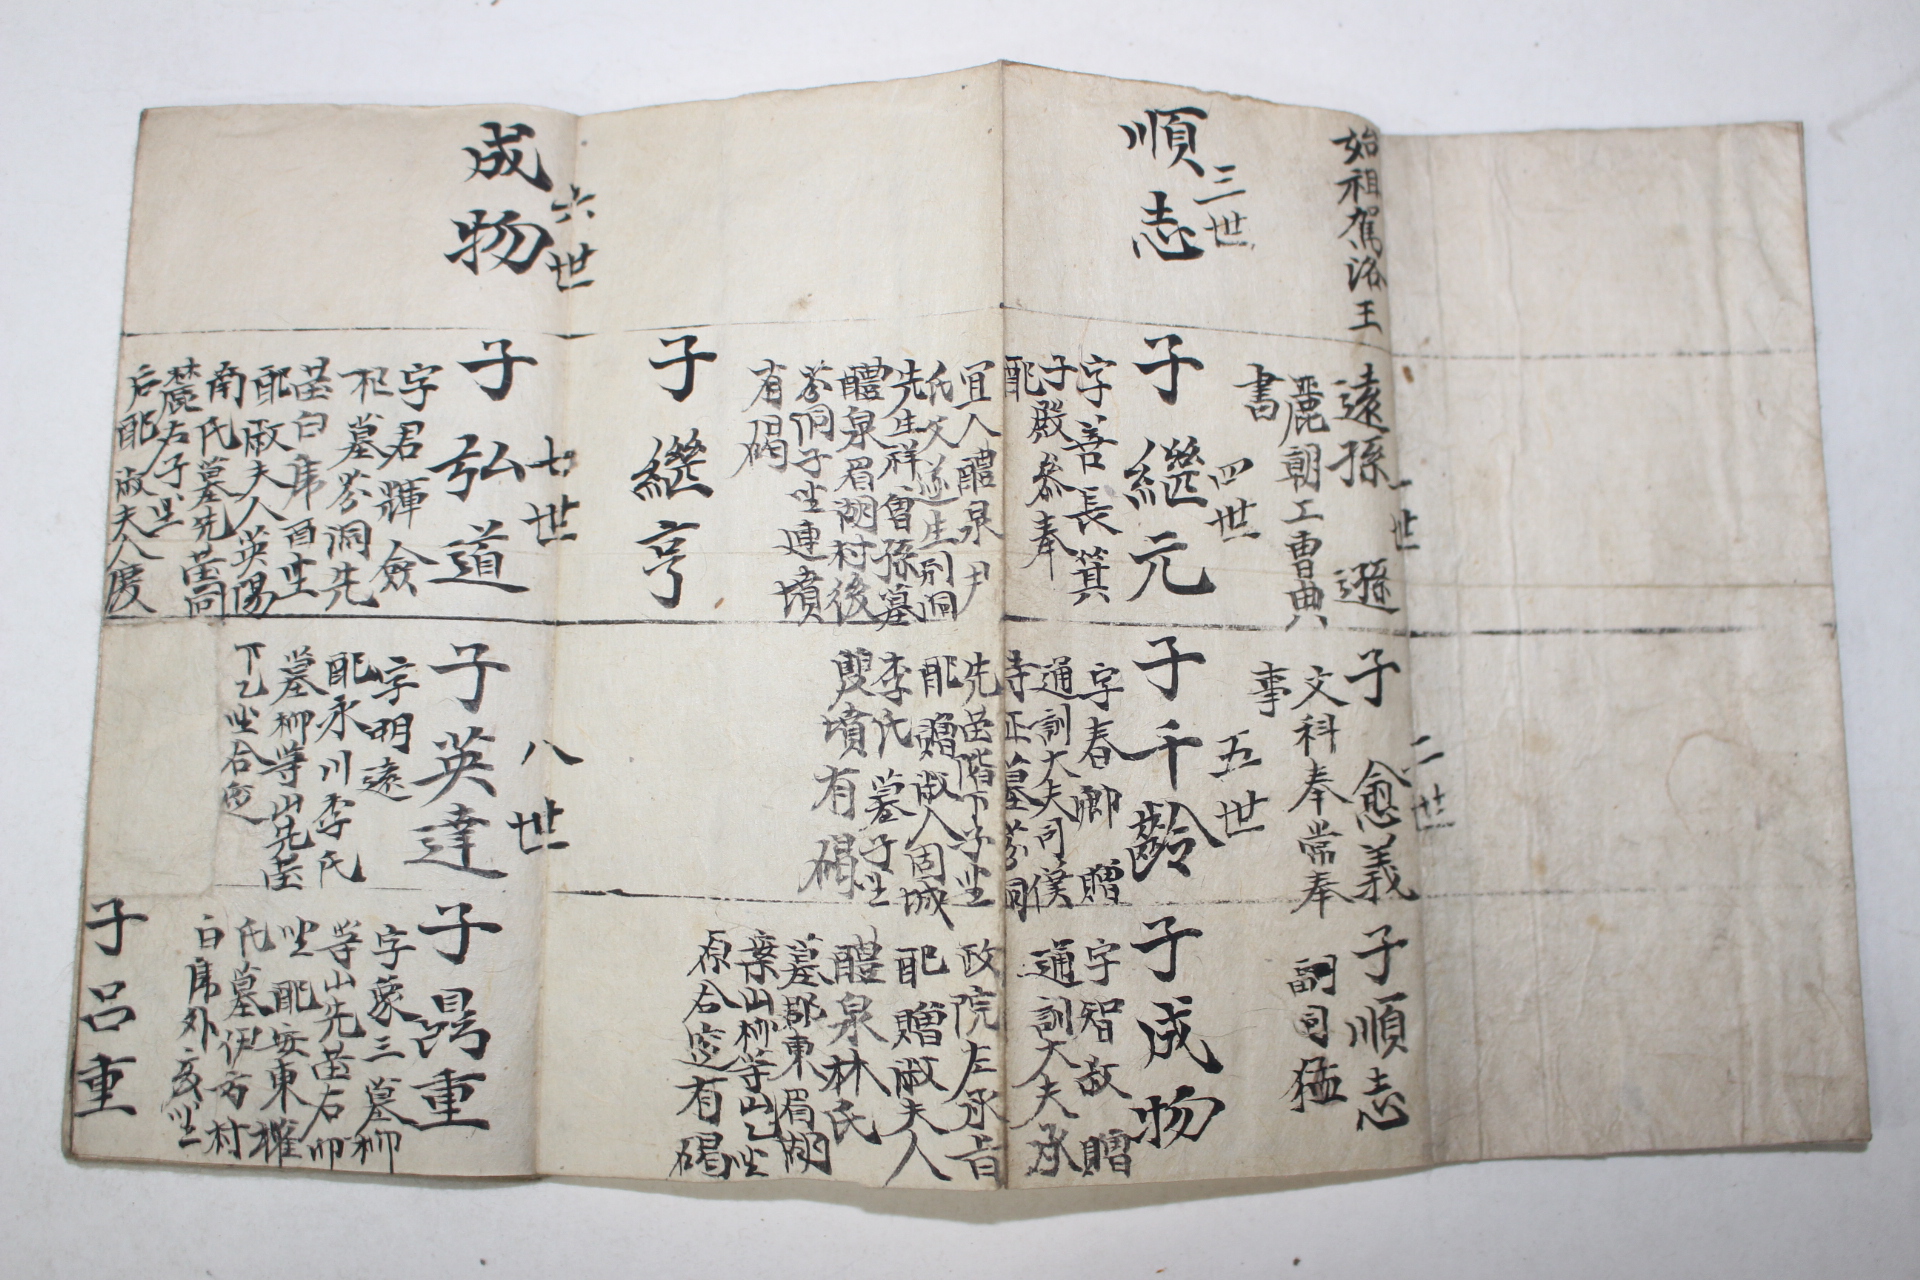 始祖駕洛王
遠孫 遜
一世
麗朝工曹典
書
子 愈義
二世
文科奉常奉
事
子順志
副司猛
三世
順志
子繼元
四世
字善長箕
子殿參奉
配
宜人醴泉尹
氏父遂生別洞
先生祥曾孫墓
醴泉眉湖村後
芬洞子坐連墳
有碣
子千齡
五世
字春卿 贈
通訓大夫司僕
寺正墓芬洞
先塋階下子坐
配 贈淑人固城
李氏 墓子坐
雙墳有碣
子成物
字智叔 贈
通訓大夫承
政院左承旨
配 贈淑夫人
醴泉林氏
墓郡東眉湖
葉山柳等山乙坐
原合窆有碣
子繼亨
六世
成物
子弘道
七世
字君輝 僉
知墓芬洞先
塋白虎酉坐
配淑夫人英陽
南氏墓先塋同
麓右子坐
后配 淑夫人慶
子英達
八世
字明遠
配永川李氏
墓柳等山先塋
下乙坐合窆
子錫重
字象三 墓柳
等山先塋右卯
坐 配安東權
氏墓伊方村
白虎外亥坐
子呂重